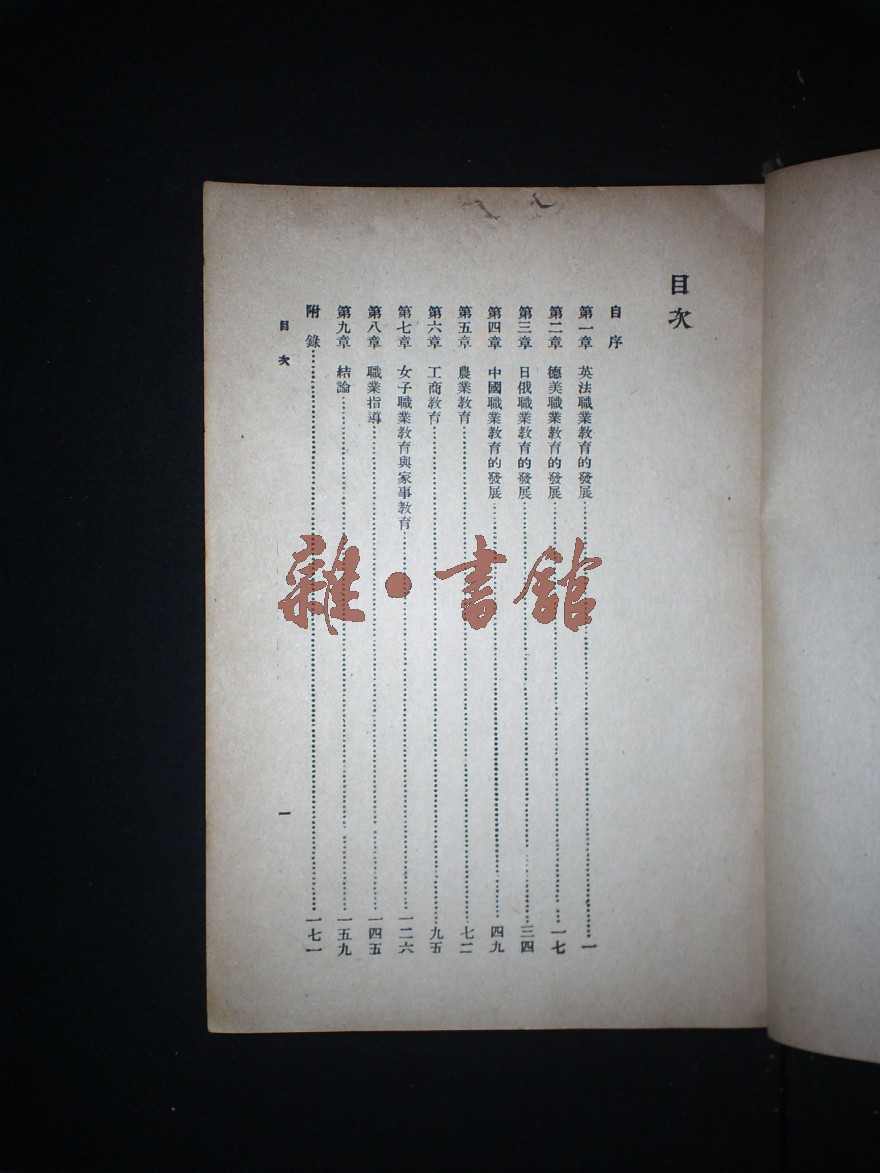 目次
自序
第一章　英法職業教育的發展……一
第二章　德美職業教育的發展……一七
第三章　日俄職業教育的發展……三四
第四章　中國職業教育的發展……四九
第五章　農業教育……七二
第六章　工商教育……九五
第七章　女子職業教育與家事教育……一二六
第八章　職業指導……一四五
第九章　結論……一五九
附錄……一七一
目次
一
雜·書館